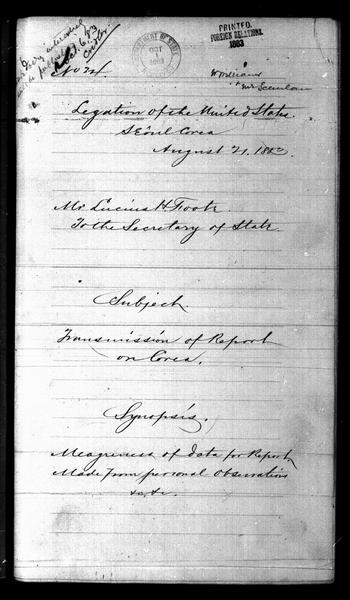 PRINTED.
FOREIGN RELATIONS.
1883
DEPARTMENT OF STATE
OCT
1883
No 24.
Legation of the United States.
Séoul Corea
August 21, 1883.
Mr Lucius H. Foote
To the Secretary of State
Subject.
Transmission of Report
on Corea.
Synopsis.
Meagreness of data for Report,
Made from personal Observations
&c, &c.